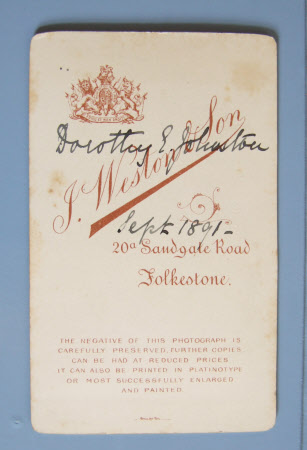 Dorothy E. Johnston
J. Weston & Son
Sept 1891-
20a Sandgate Road
Folkestone.
THE NEGATIVE OF THIS PHOTOGRAPH IS
CAREFULLY PRESERVED, FURTHER COPIES
CAN BE HAD AT REDUCED PRICES
IT CAN ALSO BE PRINTED IN PLATINOTYPE
OR MOST SUCCESSFULLY ENLARGED
AND PAINTED.